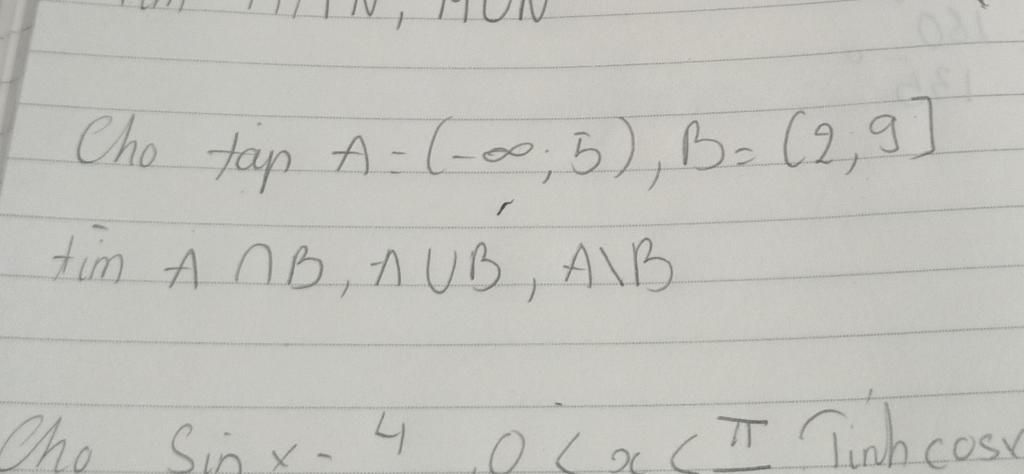 Cho tập A = (-∞; 5), B = (2, 9]
tìm A ∩ B, A ∪ B, A \ B
Cho Sin x = 4 , 0 < x < π Tính cosx